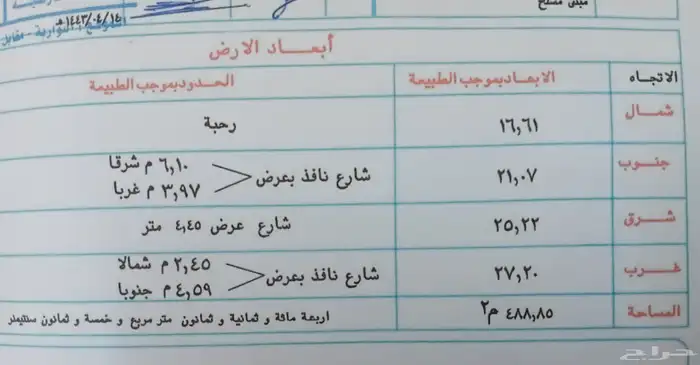 مبنى مسلح
١٤٤٣/٠٤/١٤هـ
أبعاد الارض
الاتجاه الابعاد بموجب الطبيعة الحدود بموجب الطبيعة
شمال ١٦,٦١ رحبة
جنوب ٢١,٠٧ شارع نافذ بعرض ٦,١٠ م شرقا
٣,٩٧ م غربا
شرق ٢٥,٢٢ شارع عرض ٤,٤٥ متر
غرب ٢٧,٢٠ شارع نافذ بعرض ٢,٤٥ م شمالا
٤,٥٩ م جنوبا
المساحة ٤٨٨,٨٥ م٢ اربعة مائة و ثمانية و ثمانون متر مربع و خمسة و ثمانون سنتيمتر
حراج